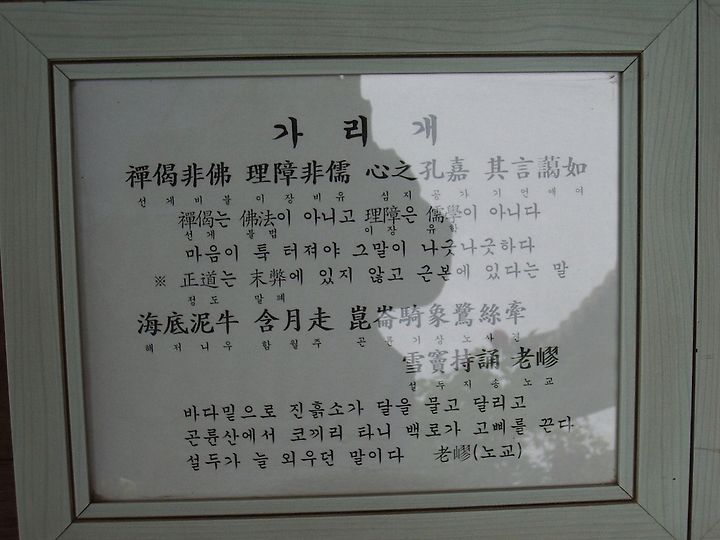 가 리 개
禪偈非佛 理障非儒 心之孔嘉 其言藹如
선게비불이장비유 심지공가기언애여
禪偈는 佛法이 아니고 理障은 儒學이 아니다
선게 불법 이장 유학
마음이 툭 터져야 그말이 나긋나긋하다
※ 正道는 末弊에 있지 않고 근본에 있다는 말
정도 말폐
海底泥牛 含月走 崑崙騎象鷺絲牽
해저니우 함월주 곤륜기상노사견
雪竇持誦 老嶛
설두지송 노교
바다밑으로 진흙소가 달을 물고 달리고
곤륜산에서 코끼리 타니 백로가 고삐를 끈다
설두가 늘 외우던 말이다 老嶛(노교)